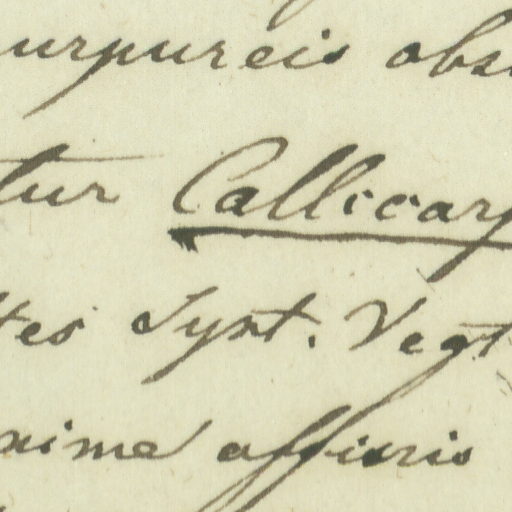 urpureis obs
tur Callicarp
tes Syst. Vegt
xime affinis